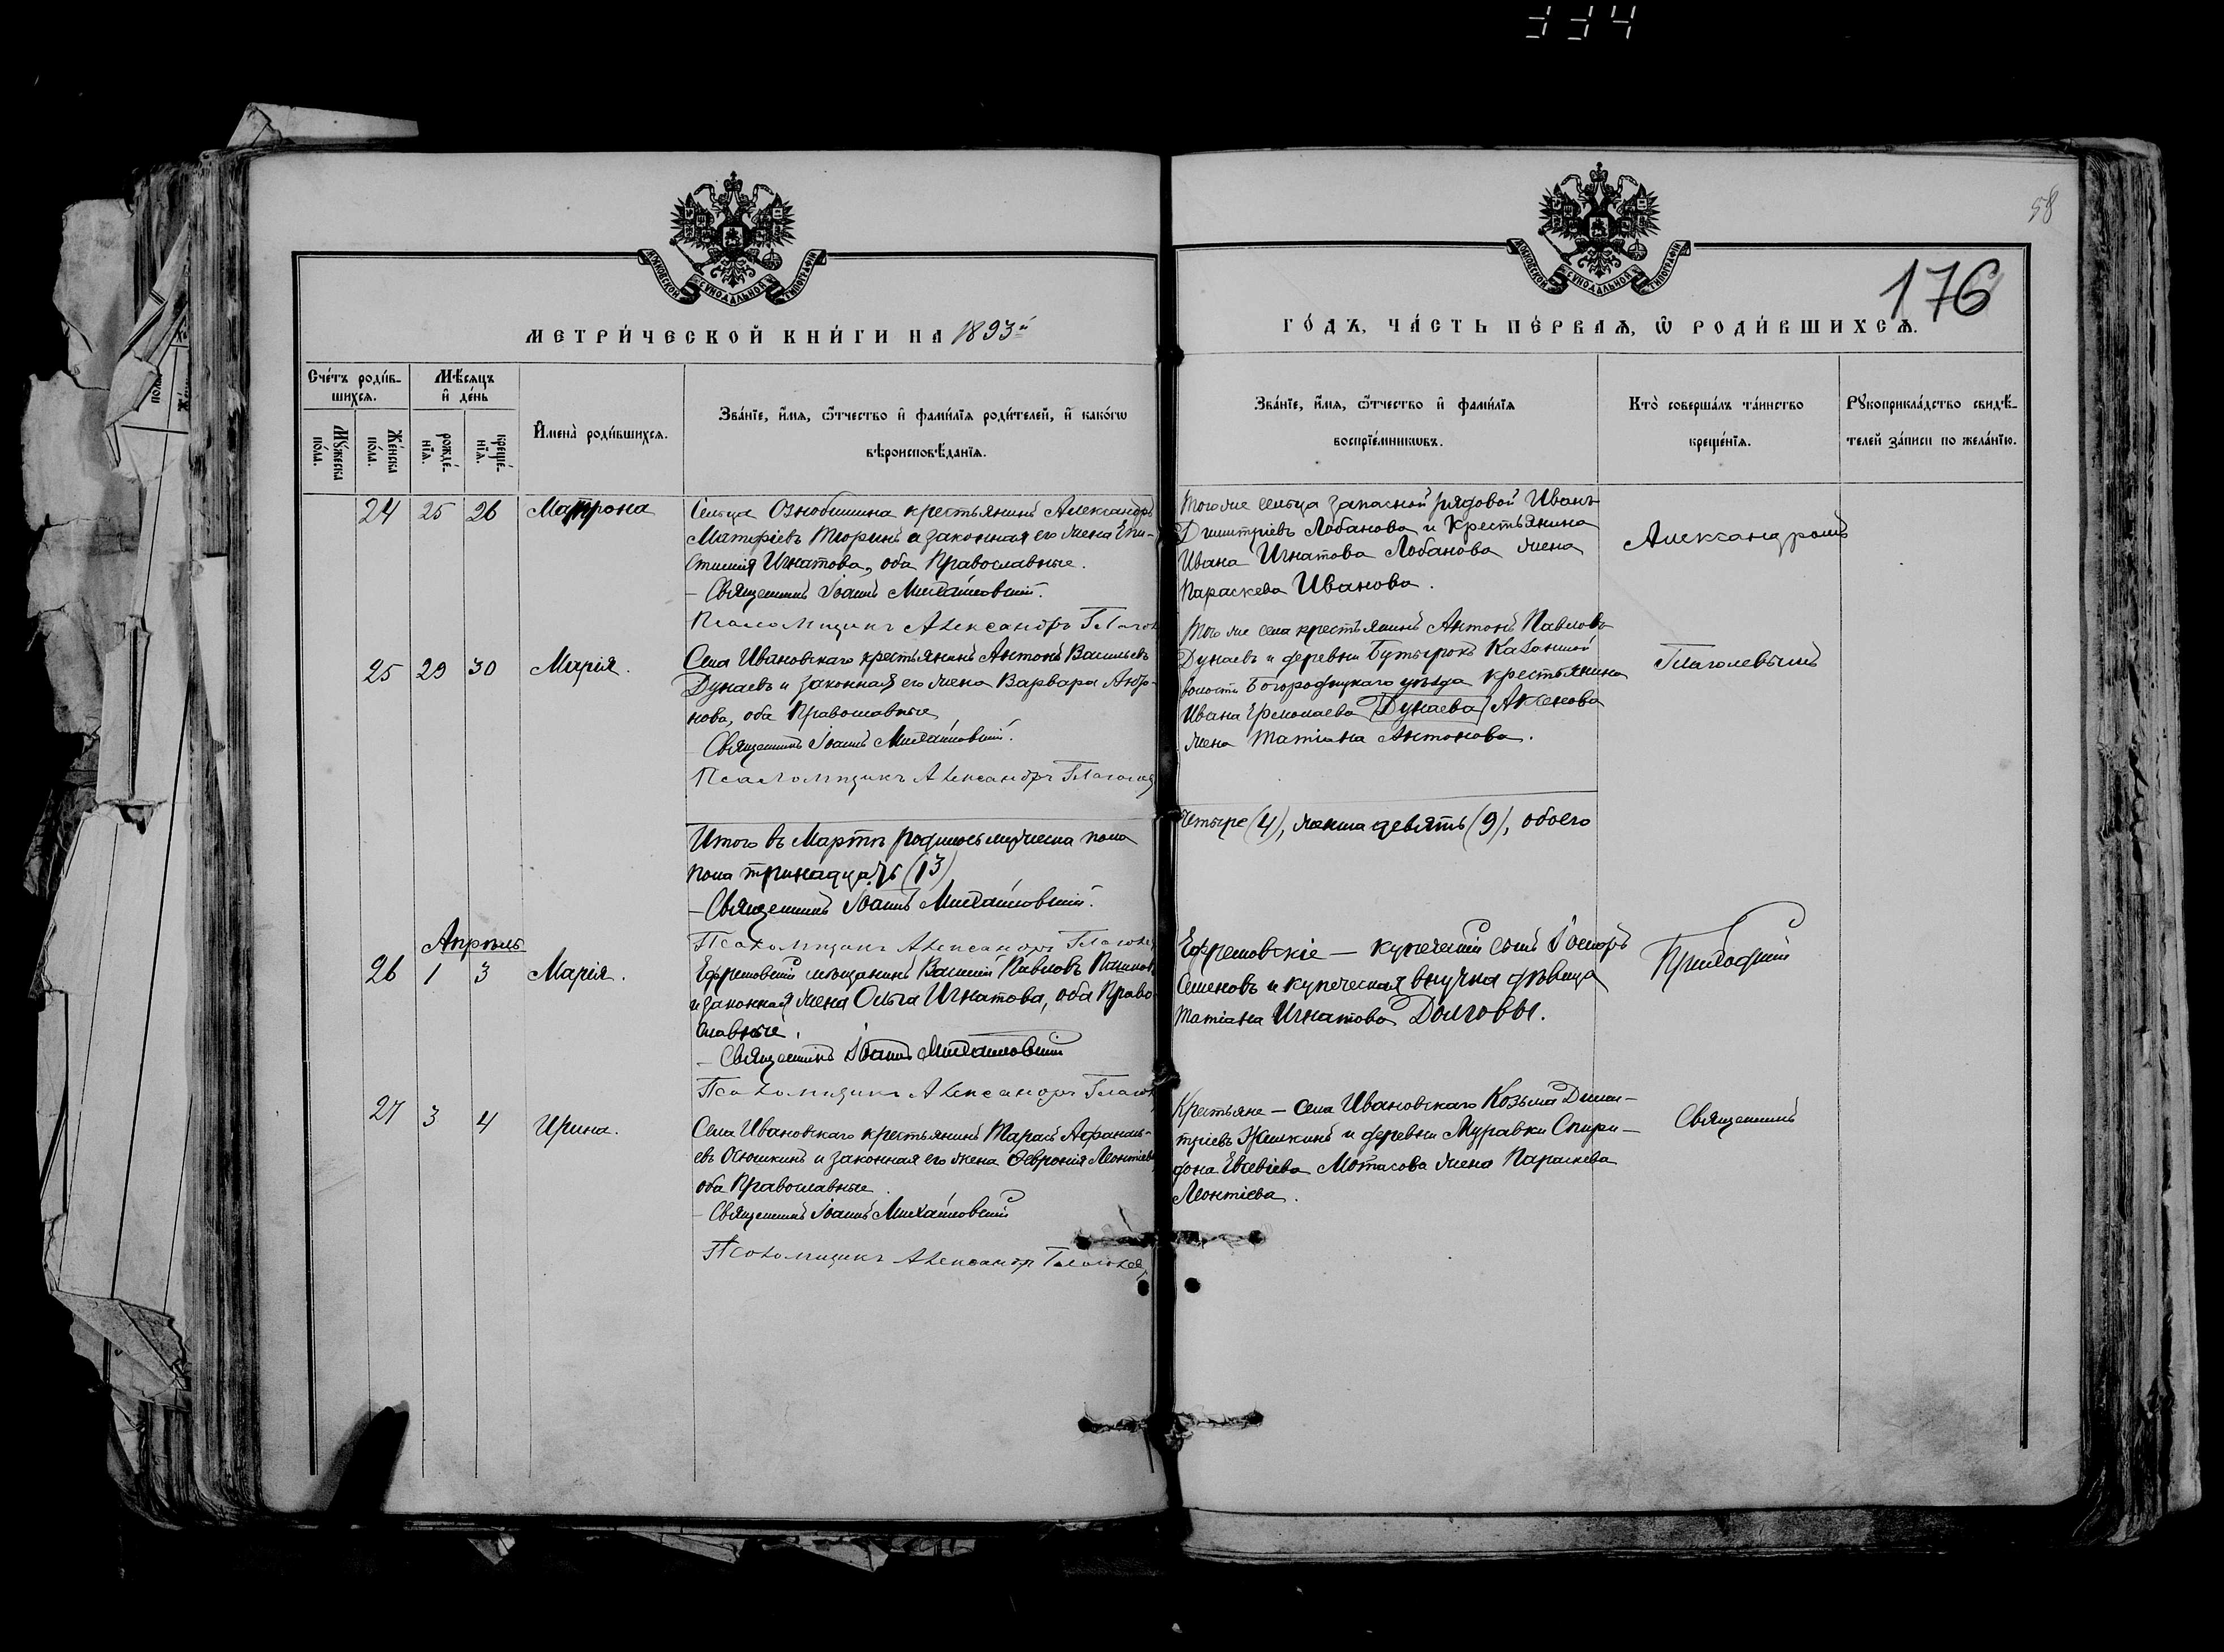 334
58
176
МОСКОВСКОЙ СѴНОДАЛЬНОЙ ТИПОГРАФІИ
МОСКОВСКОЙ СѴНОДАЛЬНОЙ ТИПОГРАФІИ
МЕТРИ́ЧЕСКОЙ КНИ́ГИ НА 1893й
ГО́ДЪ, ЧА́СТЬ ПЕ́РВАѦ, Ѡ҃ РОДИ́ВШИХСѦ.
Сче́тъ роди́в-
шихсѧ.
Мꙋ́жеска
по́ла.
Же́нска
по́ла.
Мѣ́сѧцъ
и҆ де́нь
рожде́-
нїѧ.
креще́-
нїѧ.
И҆мена̀ роди́вшихсѧ.
Зва́нїе, и҆́мѧ, ѻ҆́тчество и҆ фами́лїѧ роди́телей, и҆ како́гѡ
вѣроисповѣ́данїѧ.
Зва́нїе, и҆́мѧ, ѻ҆́тчество и҆ фами́лїѧ
воспрїе́мникѡвъ.
Кто̀ соверша́лъ та́инство
креще́нїѧ.
Рꙋкоприкла́дство свидѣ́-
телей за́писи по жела́нїю.
24 25 26 Матрона
Сельца Ознобишина крестьянинъ Александръ
Матѳіевъ Тюринъ и законная его жена Епи-
стимія Игнатова, оба Православные.
– Священникъ Іоаннъ Михайловскій.
Псаломщикъ Александръ Глагол
Того же сельца запасной рядовой Иванъ
Димитріевъ Лобановъ и Крестьянина
Ивана Игнатова Лобанова жена
Параскева Иванова.
Александромъ
25 29 30 Марія.
Села Ивановскаго крестьянинъ Антонъ Васильевъ
Дунаевъ и законная его жена Варвара
нова, оба Православные
Священникъ Іоаннъ Михайловскій.
Псаломщикъ Александръ Глаголев
Того же села крестьянинъ Антонъ Павловъ
Дунаевъ и деревни Бутырокъ
волости Богородицкаго уѣзда крестьянина
Ивана Ермолаева (Дунаева) Аксенова
жена Татіана Антонова.
Глаголевымъ
Итого въ Мартѣ родилось мужеска пола
Четыре (4), женска девять (9), обоего
пола тринадцать (13)
– Священникъ Іоаннъ Михайловскій.
Псаломщикъ Александръ Глаголев
Апрѣль
26 1 3 Марія.
Ефремовскій мѣщанинъ Василій Павловъ
и законная жена Ольга Игнатова, оба Право
славные.
– Священникъ Іоаннъ Михайловскій
Псаломщикъ Александръ Глагол
Ефремовскіе – купеческій сынъ
Семеновъ и купеческая внучка дѣвица
Татіана Игнатова Долговы.
Приходскій
27 3 4 Ирина.
Села Ивановскаго крестьянинъ Тарасъ Афанась-
евъ Осюшкинъ и законная его жена Ѳевронія Леонтіев
оба Православные.
– Священникъ Іоаннъ Михайловскій
Псаломщикъ Александръ Глаголев
Крестьяне – села Ивановскаго Козьма Дими-
тріевъ и деревни Муравки Спири-
дона Евсевіева жена Параскева
Леонтіева.
Священникъ